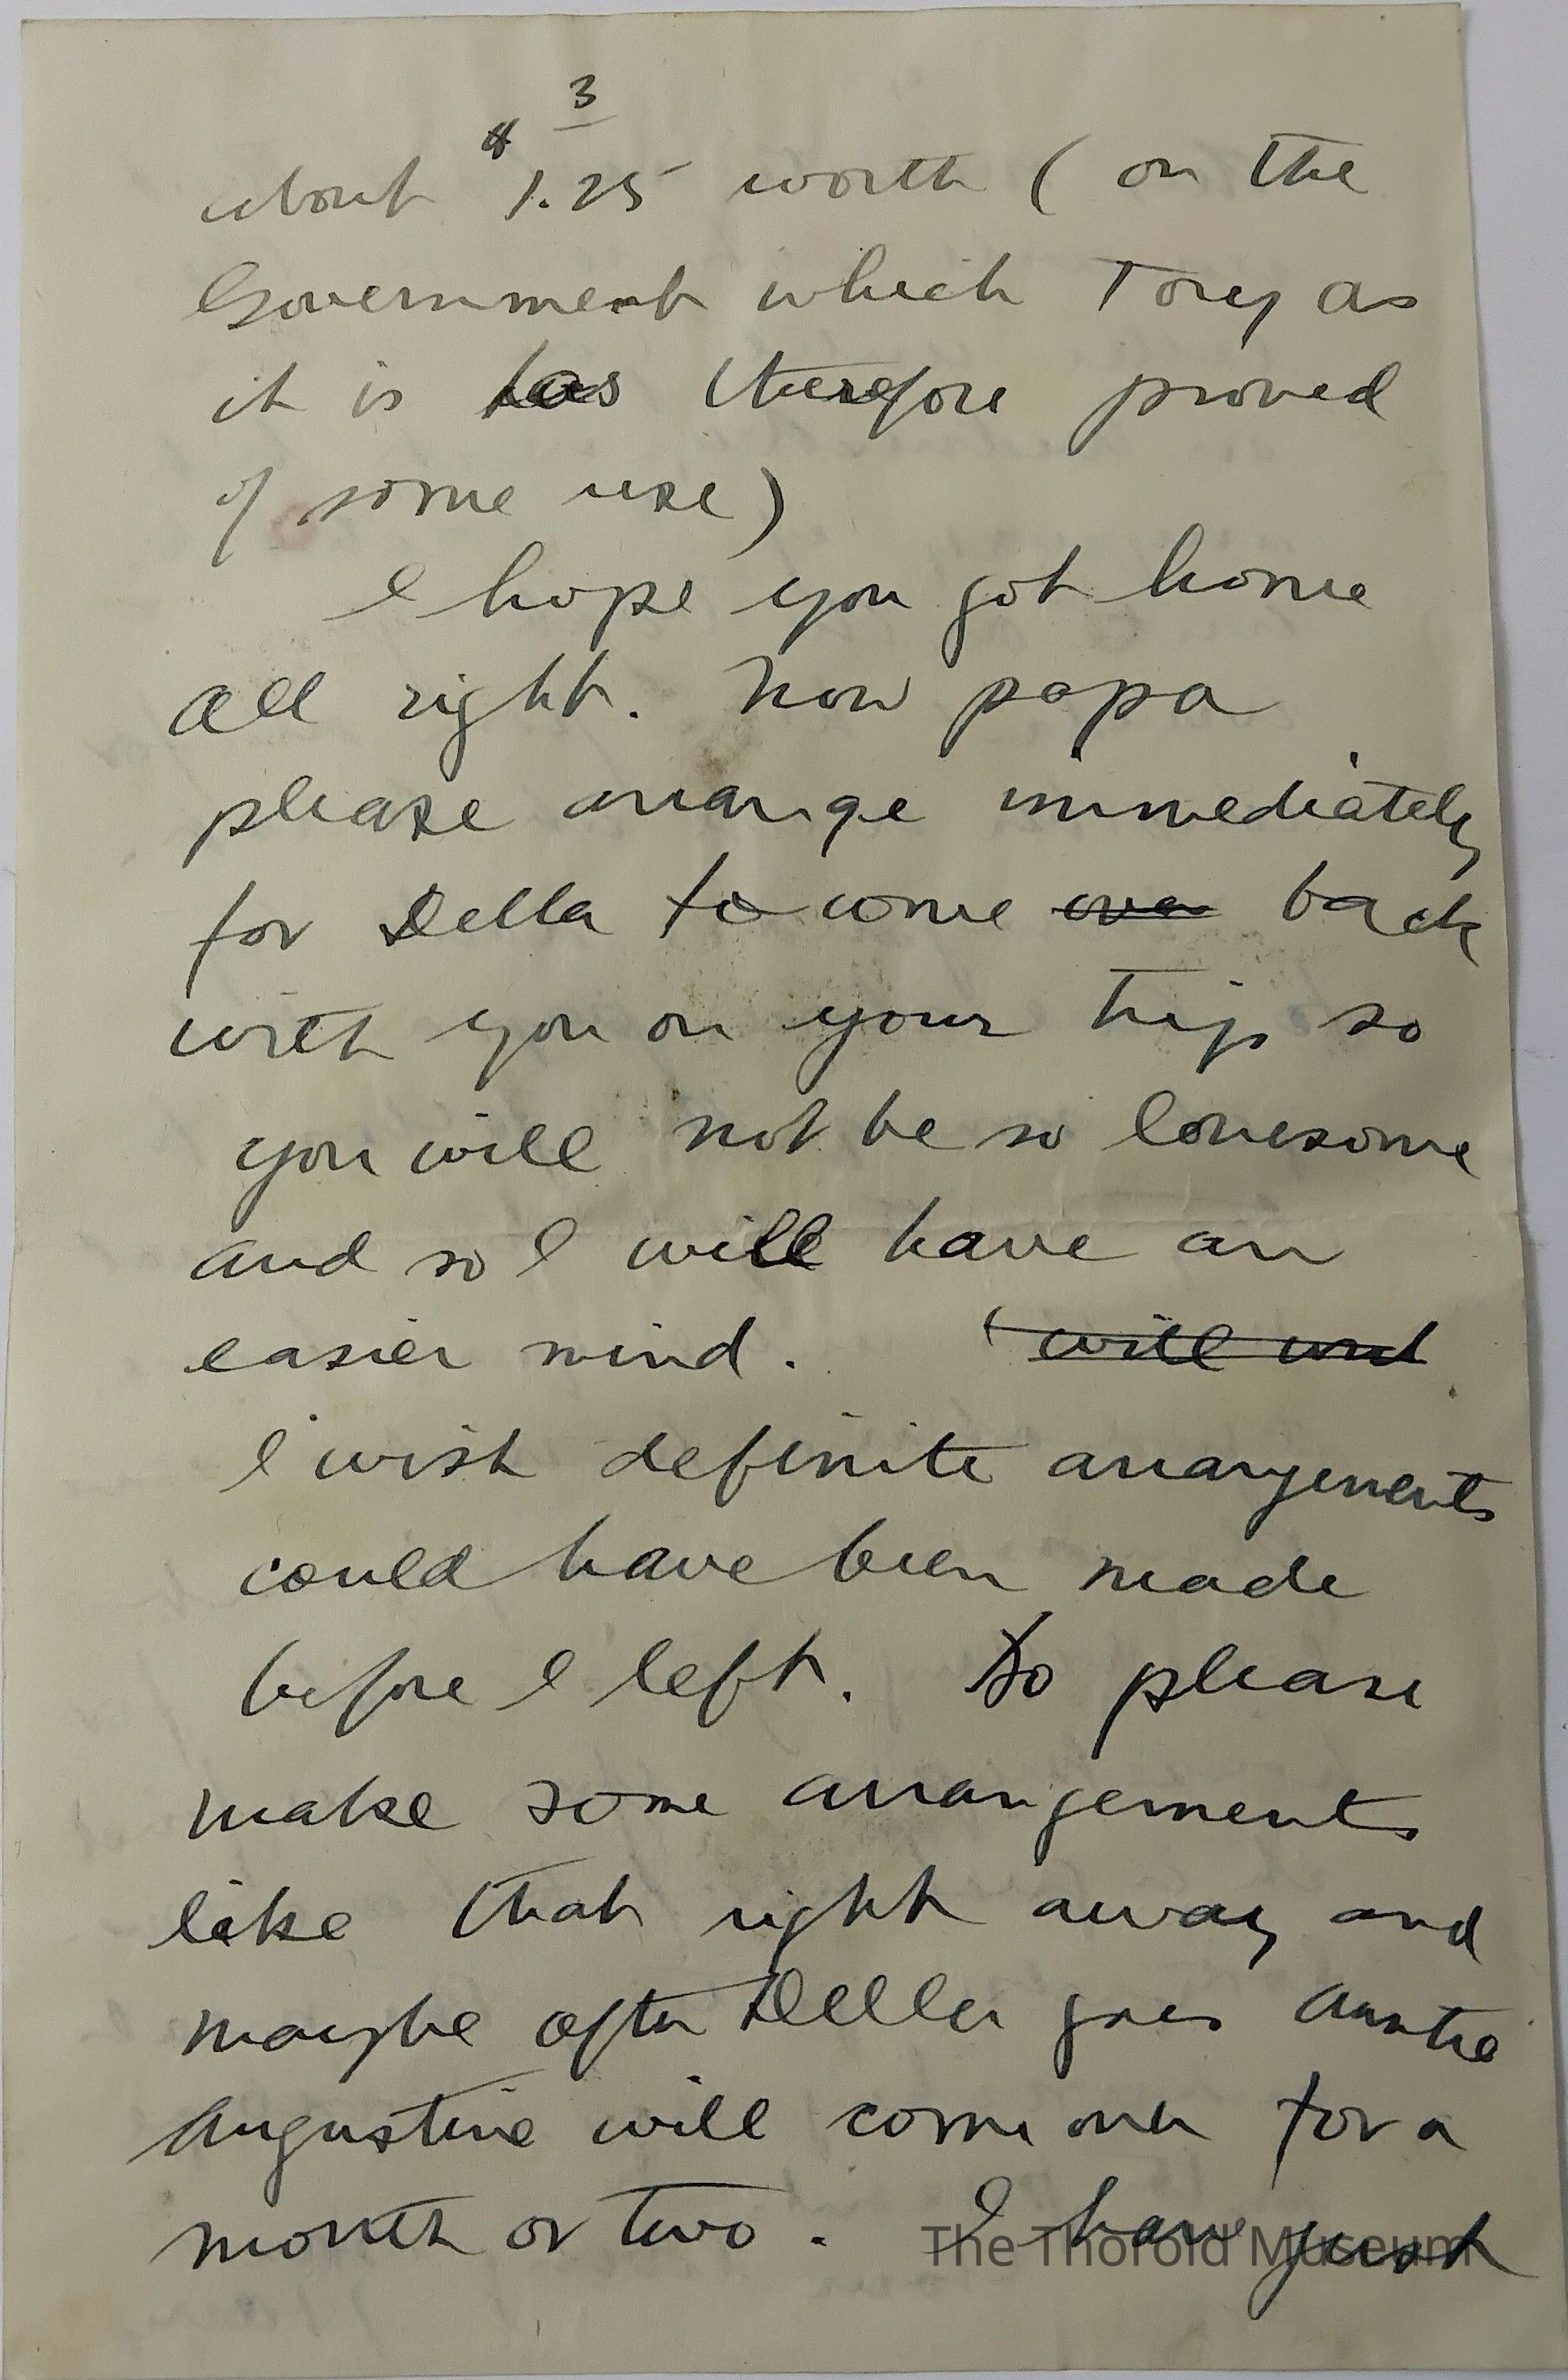 3
about $1.25 worth (on the
Government which Tory as
it is has therefore proved
of some use)
I hope you got home
all right. Now papa
please arrange immediately
for Della to come over back
with you on your trip so
you will not be so lonesome
and so I will have an
easier mind. will
I wish definite arrangements
could have been made
before I left. So please
make some arrangements
like that right away and
maybe after Della goes Auntie
Augustine will come over for a
month or two. I have just
The Thorold Museum